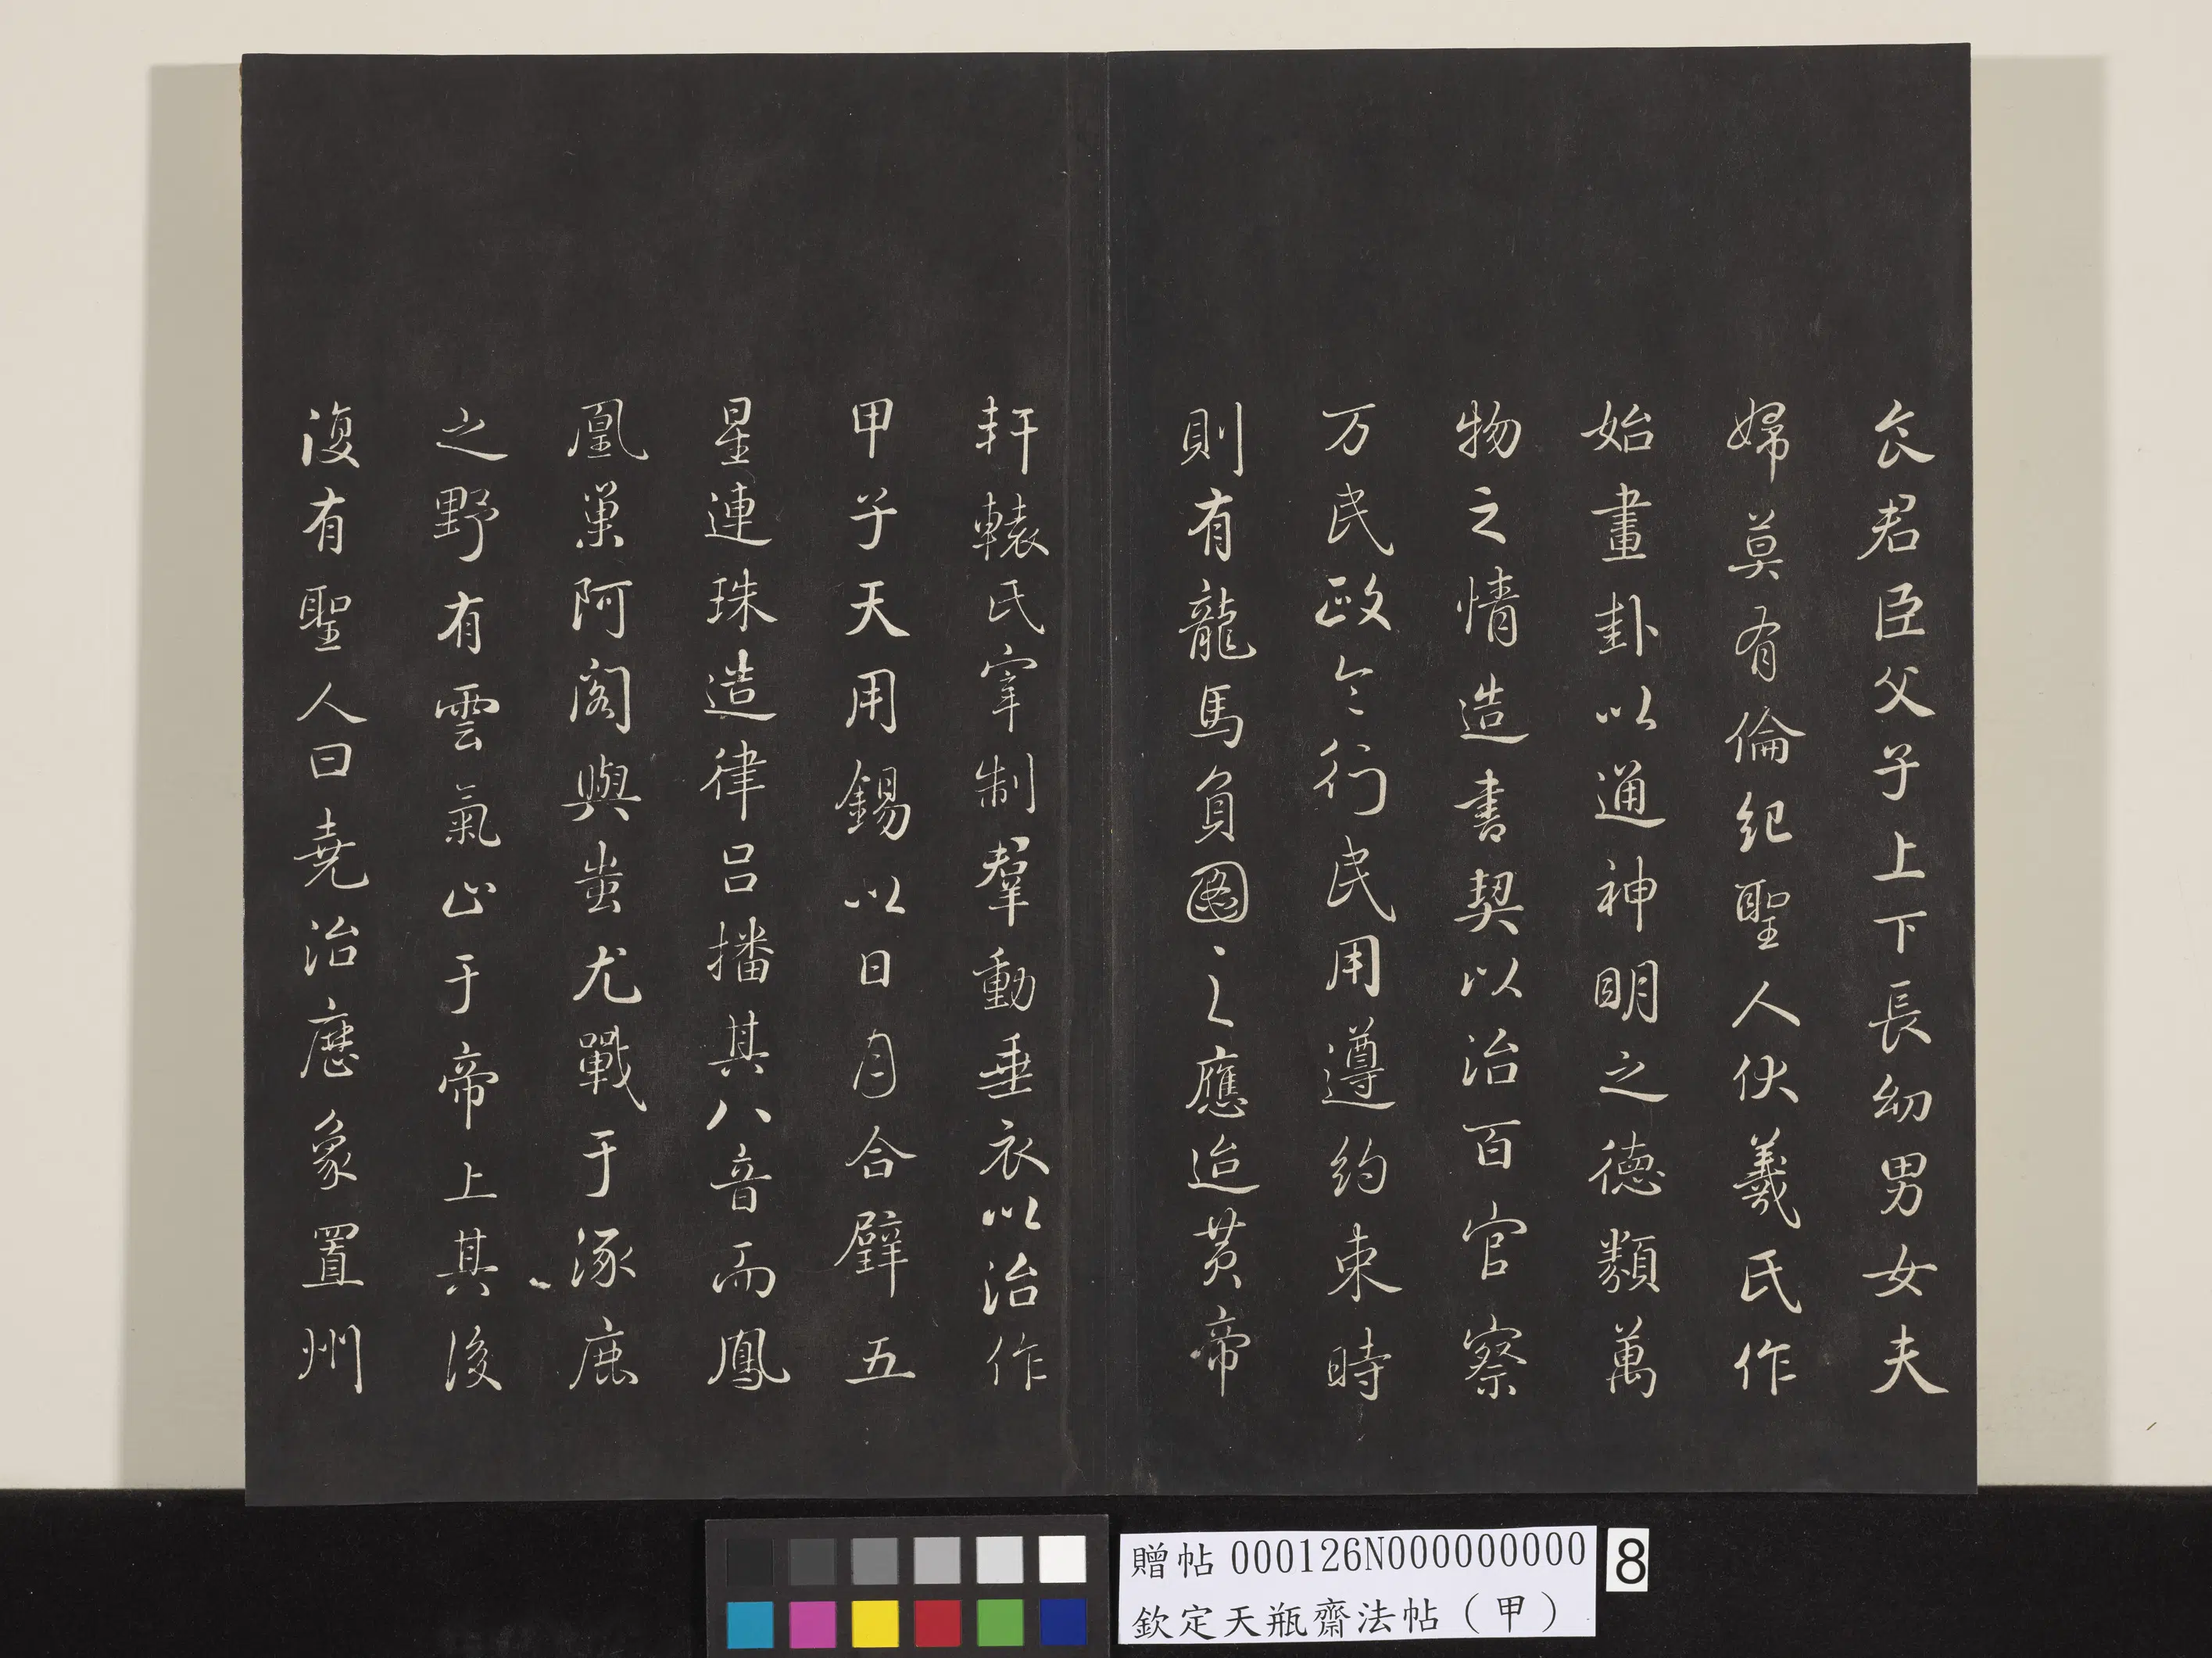 食君臣父子上下長幼男女夫
婦莫有倫紀聖人伏羲氏作
始畫卦以通神明之德類萬
物之情造書契以治百官察
万民政令行民用遵約束時
則有龍馬負圖之應迨黃帝
軒轅氏宰制羣動垂衣以治作
甲子天用錫以日月合璧五
星連珠造律呂播其八音而鳳
凰巢阿閣與蚩尤戰于涿鹿
之野有雲氣止于帝上其後
復有聖人曰堯治曆象置州
贈帖 000126N000000000 8
欽定天瓶齋法帖（甲）